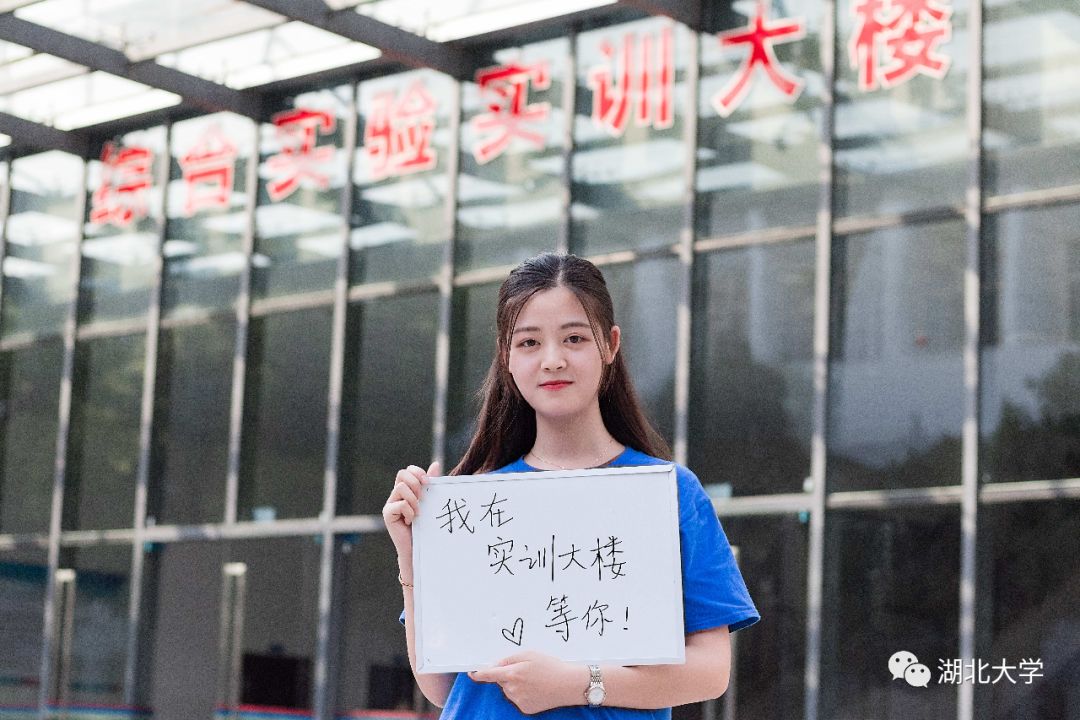 综合实验实训大楼
我在
实训大楼
♡等你!
湖北大学